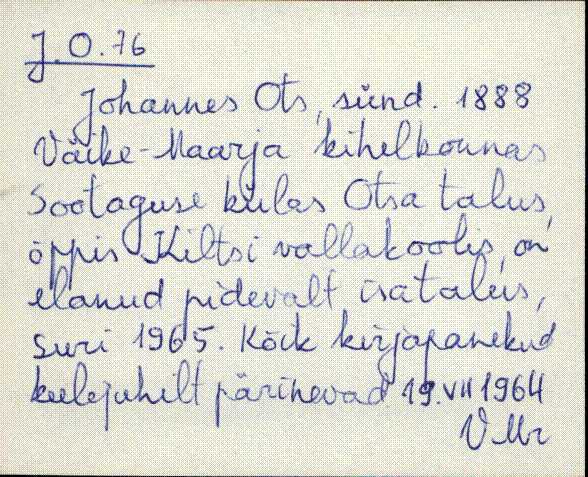 J.O. 76
Johannes Ots, sünd. 1888
Väike-Maarja kihelkonnas
Sootaguse külas Otsa talus,
õppis Kiltsi vallakoolis, on
elanud pidevalt isatalus,
suri 1965. Kõik kirjapanekud
keelejuhilt pärinevad 19.VII 1964
VMr